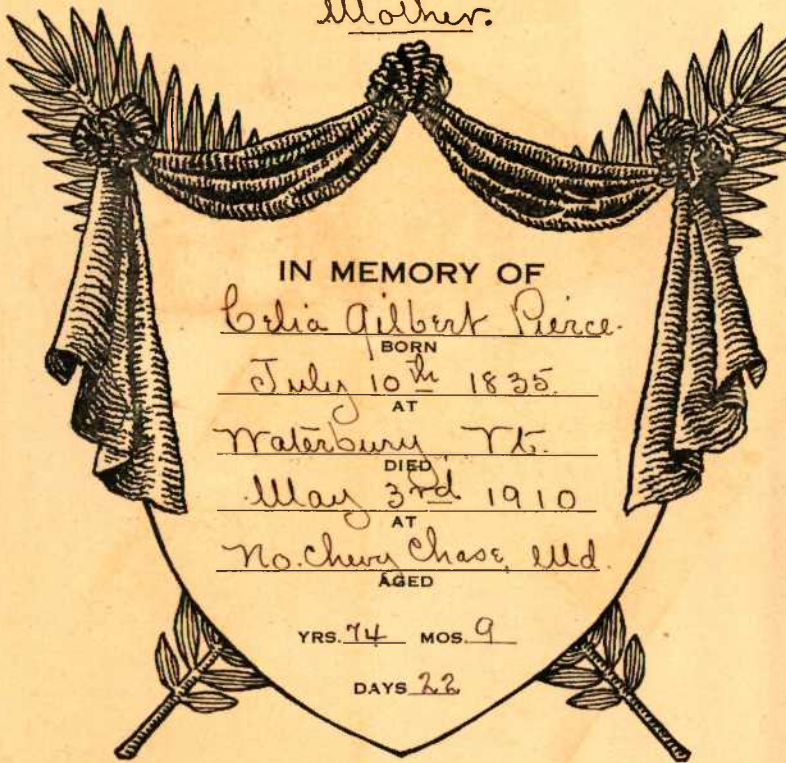 Mother.
IN MEMORY OF
Celia Gilbert Pierce.
BORN
July 10th 1835.
AT
Waterbury, Vt.
DIED
May 3rd 1910
AT
No. Chevy Chase, Md.
AGED
YRS. 74 MOS. 9
DAYS 22